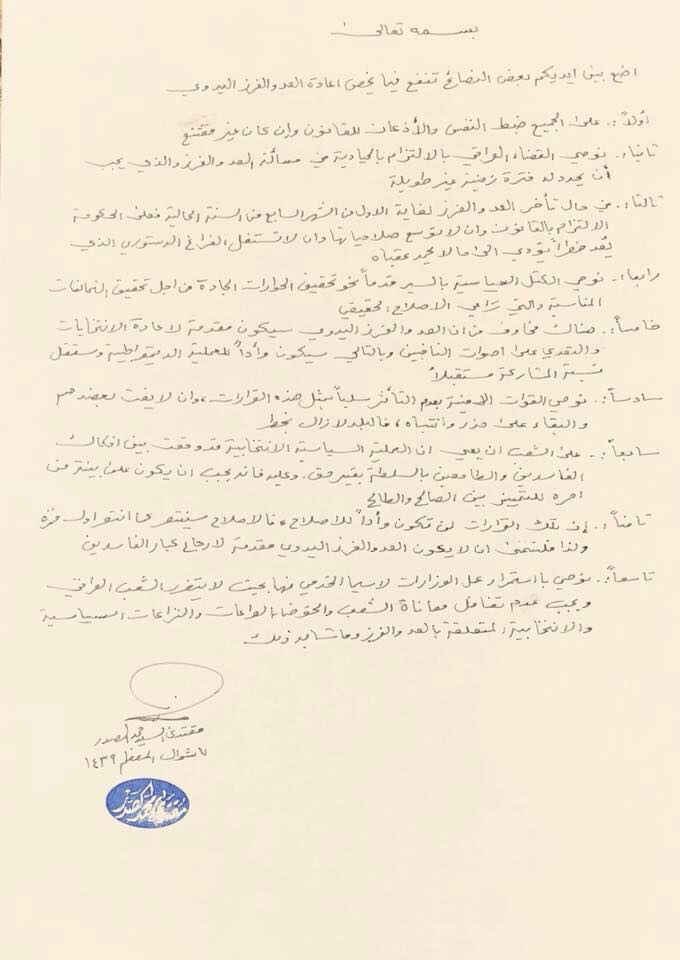 بسمه تعالى
اضع بين ايديكم بعض النصائح تنفع فيما يخص اعادة العد والفرز اليدوي
أولاً: على الجميع ضبط النفس والأذعان للقانون وإن كان غير مقتنع
ثانياً: نوصي القضاء العراقي بالالتزام بالحيادية في مسألة العد والفرز والذي يجب
أن يحدد له فترة زمنية غير طويلة
ثالثاً: في حال تأخر العد والفرز لغاية الاول من الشهر السابع من السنة الحالية فعلى الحكومة
الالتزام بالقانون وان لا توسع صلاحياتها وان لا تستغل الفراغ الدستوري الذي
يُعد خطراً يؤدي الى ما لا يحمد عقباه
رابعاً: نوصي الكتل السياسية بالسير قدماً نحو تحقيق الحوارات الجادة من اجل تحقيق التحالفات
المناسبة والتي تراعي الاصلاح الحقيقي
خامساً: هناك مخاوف من ان العد والفرز اليدوي سيكون مقدمة لاعادة الانتخابات
والتعدي على اصوات الناخبين وبالتالي سيكون وأداً للعملية الديمقراطية وستقل
نسبة المشاركة مستقبلاً
سادساً: نوصي القوات الامنية بعدم التأثر سلباً بمثل هذه القرارات، وان لا يفت بعضدهم
والبقاء على حذر وانتباه، فالبلد لازال بخطر
سابعاً: على الشعب ان يعي ان العملية السياسية الانتخابية قد وقعت بين افكاك
الفاسدين والطامعين بالسلطة بغير حق. وعليه فانه يجب ان يكون على بينة من
امره للتمييز بين الصالح والطالح
ثامناً: إن تلك القرارات لن تكون وأداً للاصلاح، فالاصلاح سينتصر كما انتصر اول مرة
ولذا فلنتمنى ان لا يكون العد والفرز اليدوي مقدمة لارجاع كبار الفاسدين
تاسعاً: نوصي باستمرار عمل الوزارات لاسيما الخدمي منها بحيث لا يتضرر الشعب العراقي
ويجب عدم تغافل معاناة الشعب والخوض بالصراعات والنزاعات السياسية
والانتخابية المتعلقة بالعد والفرز وما شابه ذلك
مقتدى السيد محمد الصدر
٧ شوال المعظم ١٤٣٩